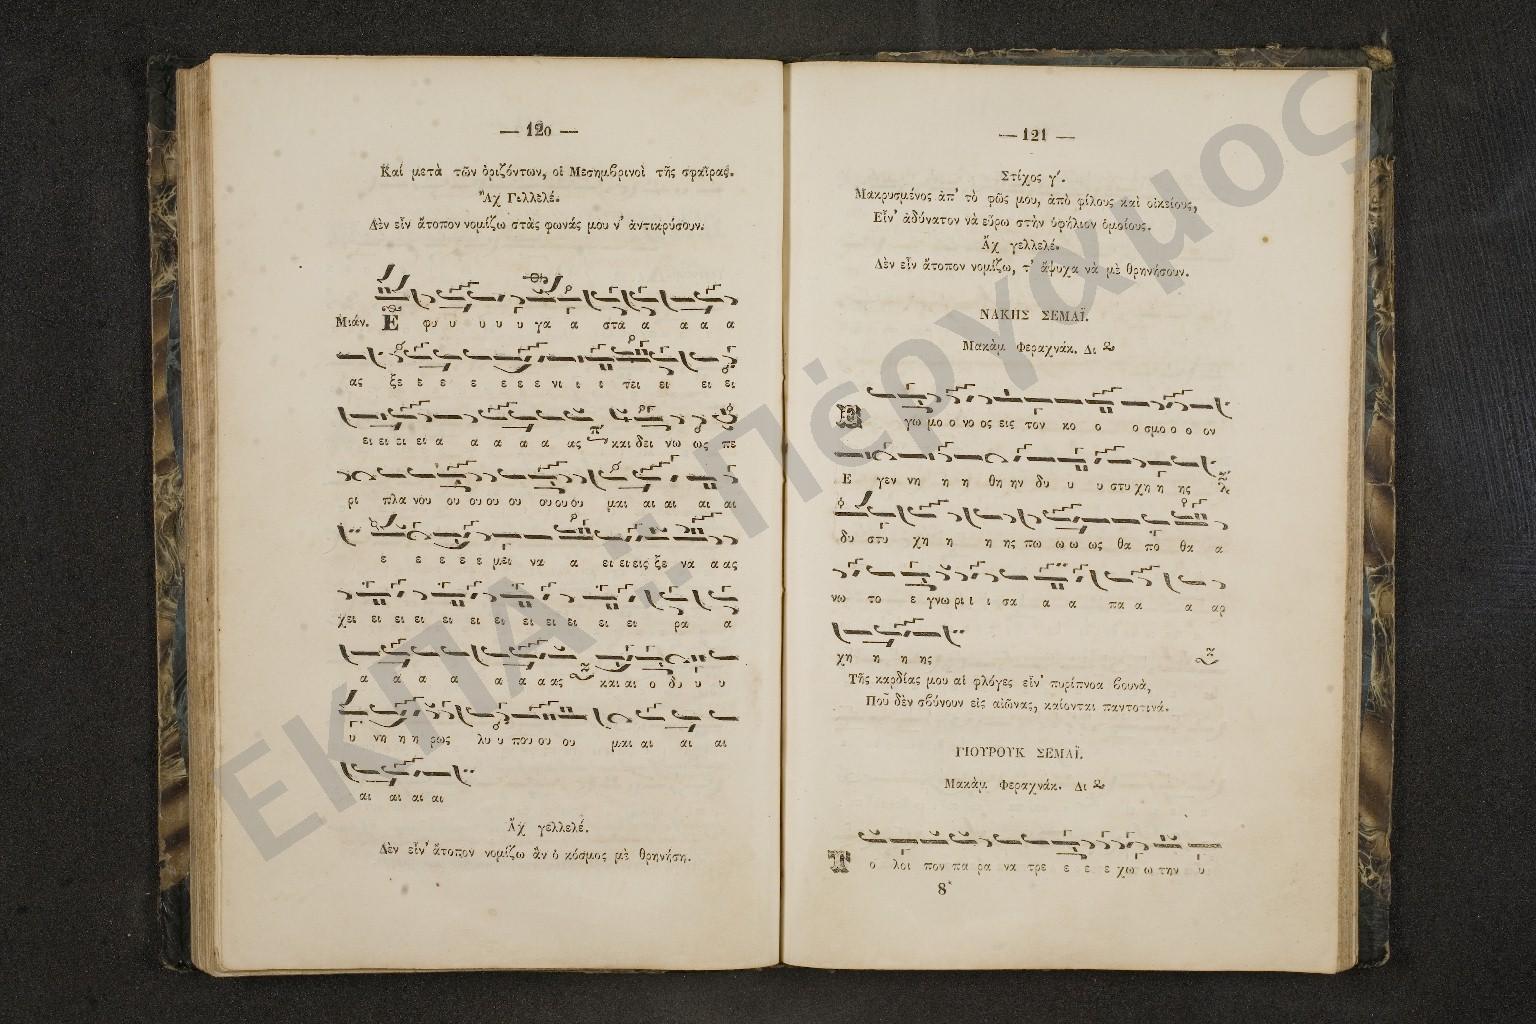 — 120 —
Καί μετὰ τῶν ὁριζόντων, οἱ Μεσημβρινοὶ τῆς σφαῖρας.
Ἂχ Γελλελέ.
Δὲν εἶν ἄτοπον νομίζω στὰς φωνάς μου ν' ἀντικρύσουν.
Μιάν. Ε φυ υ υ υ ύ γα ά στα α α α α
ας ξε ε ε ε ε ε ε νι ι ι τει ει ει ει
ει ει ει ει α α α α α ας και δει νω ως πε
ρι πλα νου ου ου ου ου ου ου ου μαι αι αι αι αι
ε ε ε ε ε μει να α ει ει εις ξε να α ας
χει ει ει ει ει ει ει ει ει ει ει ει ρα α
α α α α α α α ας και αι ο δυ υ υ
υ νη η η ρως λυ υ που ου ου μαι αι αι αι
αι αι αι αι
Ἂχ γελλελέ.
Δὲν εἶν' ἄτοπον νομίζω ἂν ὁ κόσμος μὲ θρηνήση.
— 121 —
Στίχος γ'.
Μακρυσμένος ἀπ' τὸ φῶς μου, ἀπὸ φίλους καὶ οἰκείους,
Εἶν' ἀδύνατον νὰ εὕρω στὴν ὑφήλιον ὁμοίους.
Ἂχ γελλελέ.
Δὲν εἶν ἄτοπον νομίζω, τ' ἄψυχα νὰ μὲ θρηνήσουν.
ΝΑΚΗΣ ΣΕΜΑΪ.
Μακὰμ Φεραχνάκ. Δι
Ε γω μο ο νο ος εις τον κο ο ο σμο ο ο ον
Ε γεν νη η η θη ην δυ υ υ στυ χη η ης
δυ στυ χη η η ης πω ω ω ως θα πο θα α
νω το ε γνω ρι ι ι σα α α πα α α αρ
χη η η ης
Τῆς καρδίας μου αἱ φλόγες εἶν' πυρίπνοα βουνὰ,
Ποῦ δὲν σβύνουν εἰς αἰῶνας, καίονται παντοτινά.
ΓΙΟΥΡΟΥΚ ΣΕΜΑΪ.
Μακὰμ Φεραχνάκ. Δι
Π ο λοι πον πα ρα να τρε ε ε ε χω ω την υ
8*
ΕΚΠΑ :: Πέργαμος